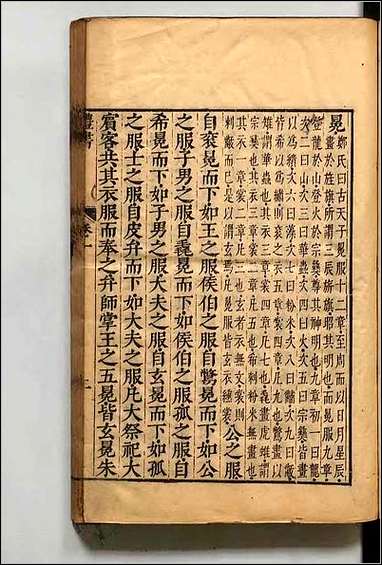 冕鄭氏曰古天子冕服十二章至周而以日月星辰
畫於旌旂所謂三辰旂旗昭其明也而冕服九章
登龍於山登火於宗彝尊其神明也九章初一曰龍
次二曰山次三曰華蟲次四曰火次五曰宗彝皆畫
以爲繢次六曰藻次七曰粉米次八曰黼次九曰黻
皆希以爲繡則袞之衣五章裳四章凡九也鷩畫以
雉謂華蟲也其衣三章裳四章凡七也毳畫虎蜼謂
宗彝也其衣三章裳二章凡五也希刺粉米無畫也
其衣一章裳二章凡三也玄者衣無文裳則
刺黻而已是以謂玄焉凡冕服皆玄衣纁裳
公之服
自袞冕而下如王之服侯伯之服自鷩冕而下如公
之服子男之服自毳冕而下如侯伯之服孤之服自
希冕而下如子男之服大夫之服自玄冕而下如孤
之服士之服自皮弁而下如大夫之服凡大祭祀大
賓客共其衣服而奉之弁師掌王之五冕皆玄冕朱
禮書
卷一